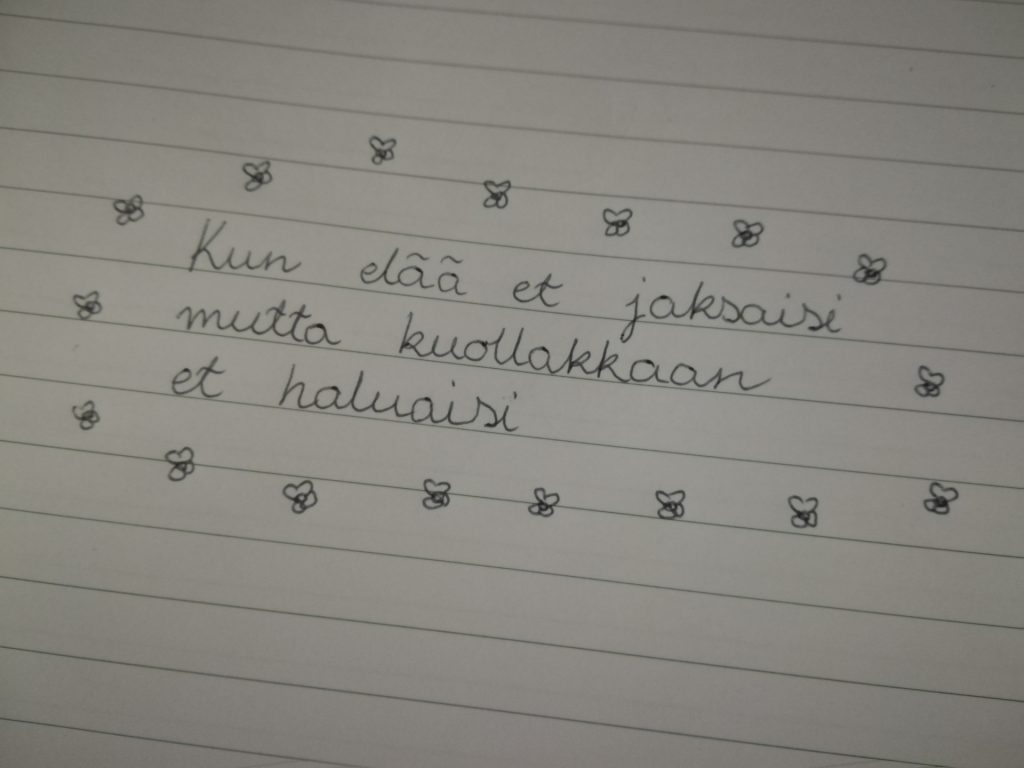 Kun elää et jaksaisi
mutta kuollakkaan
et haluaisi